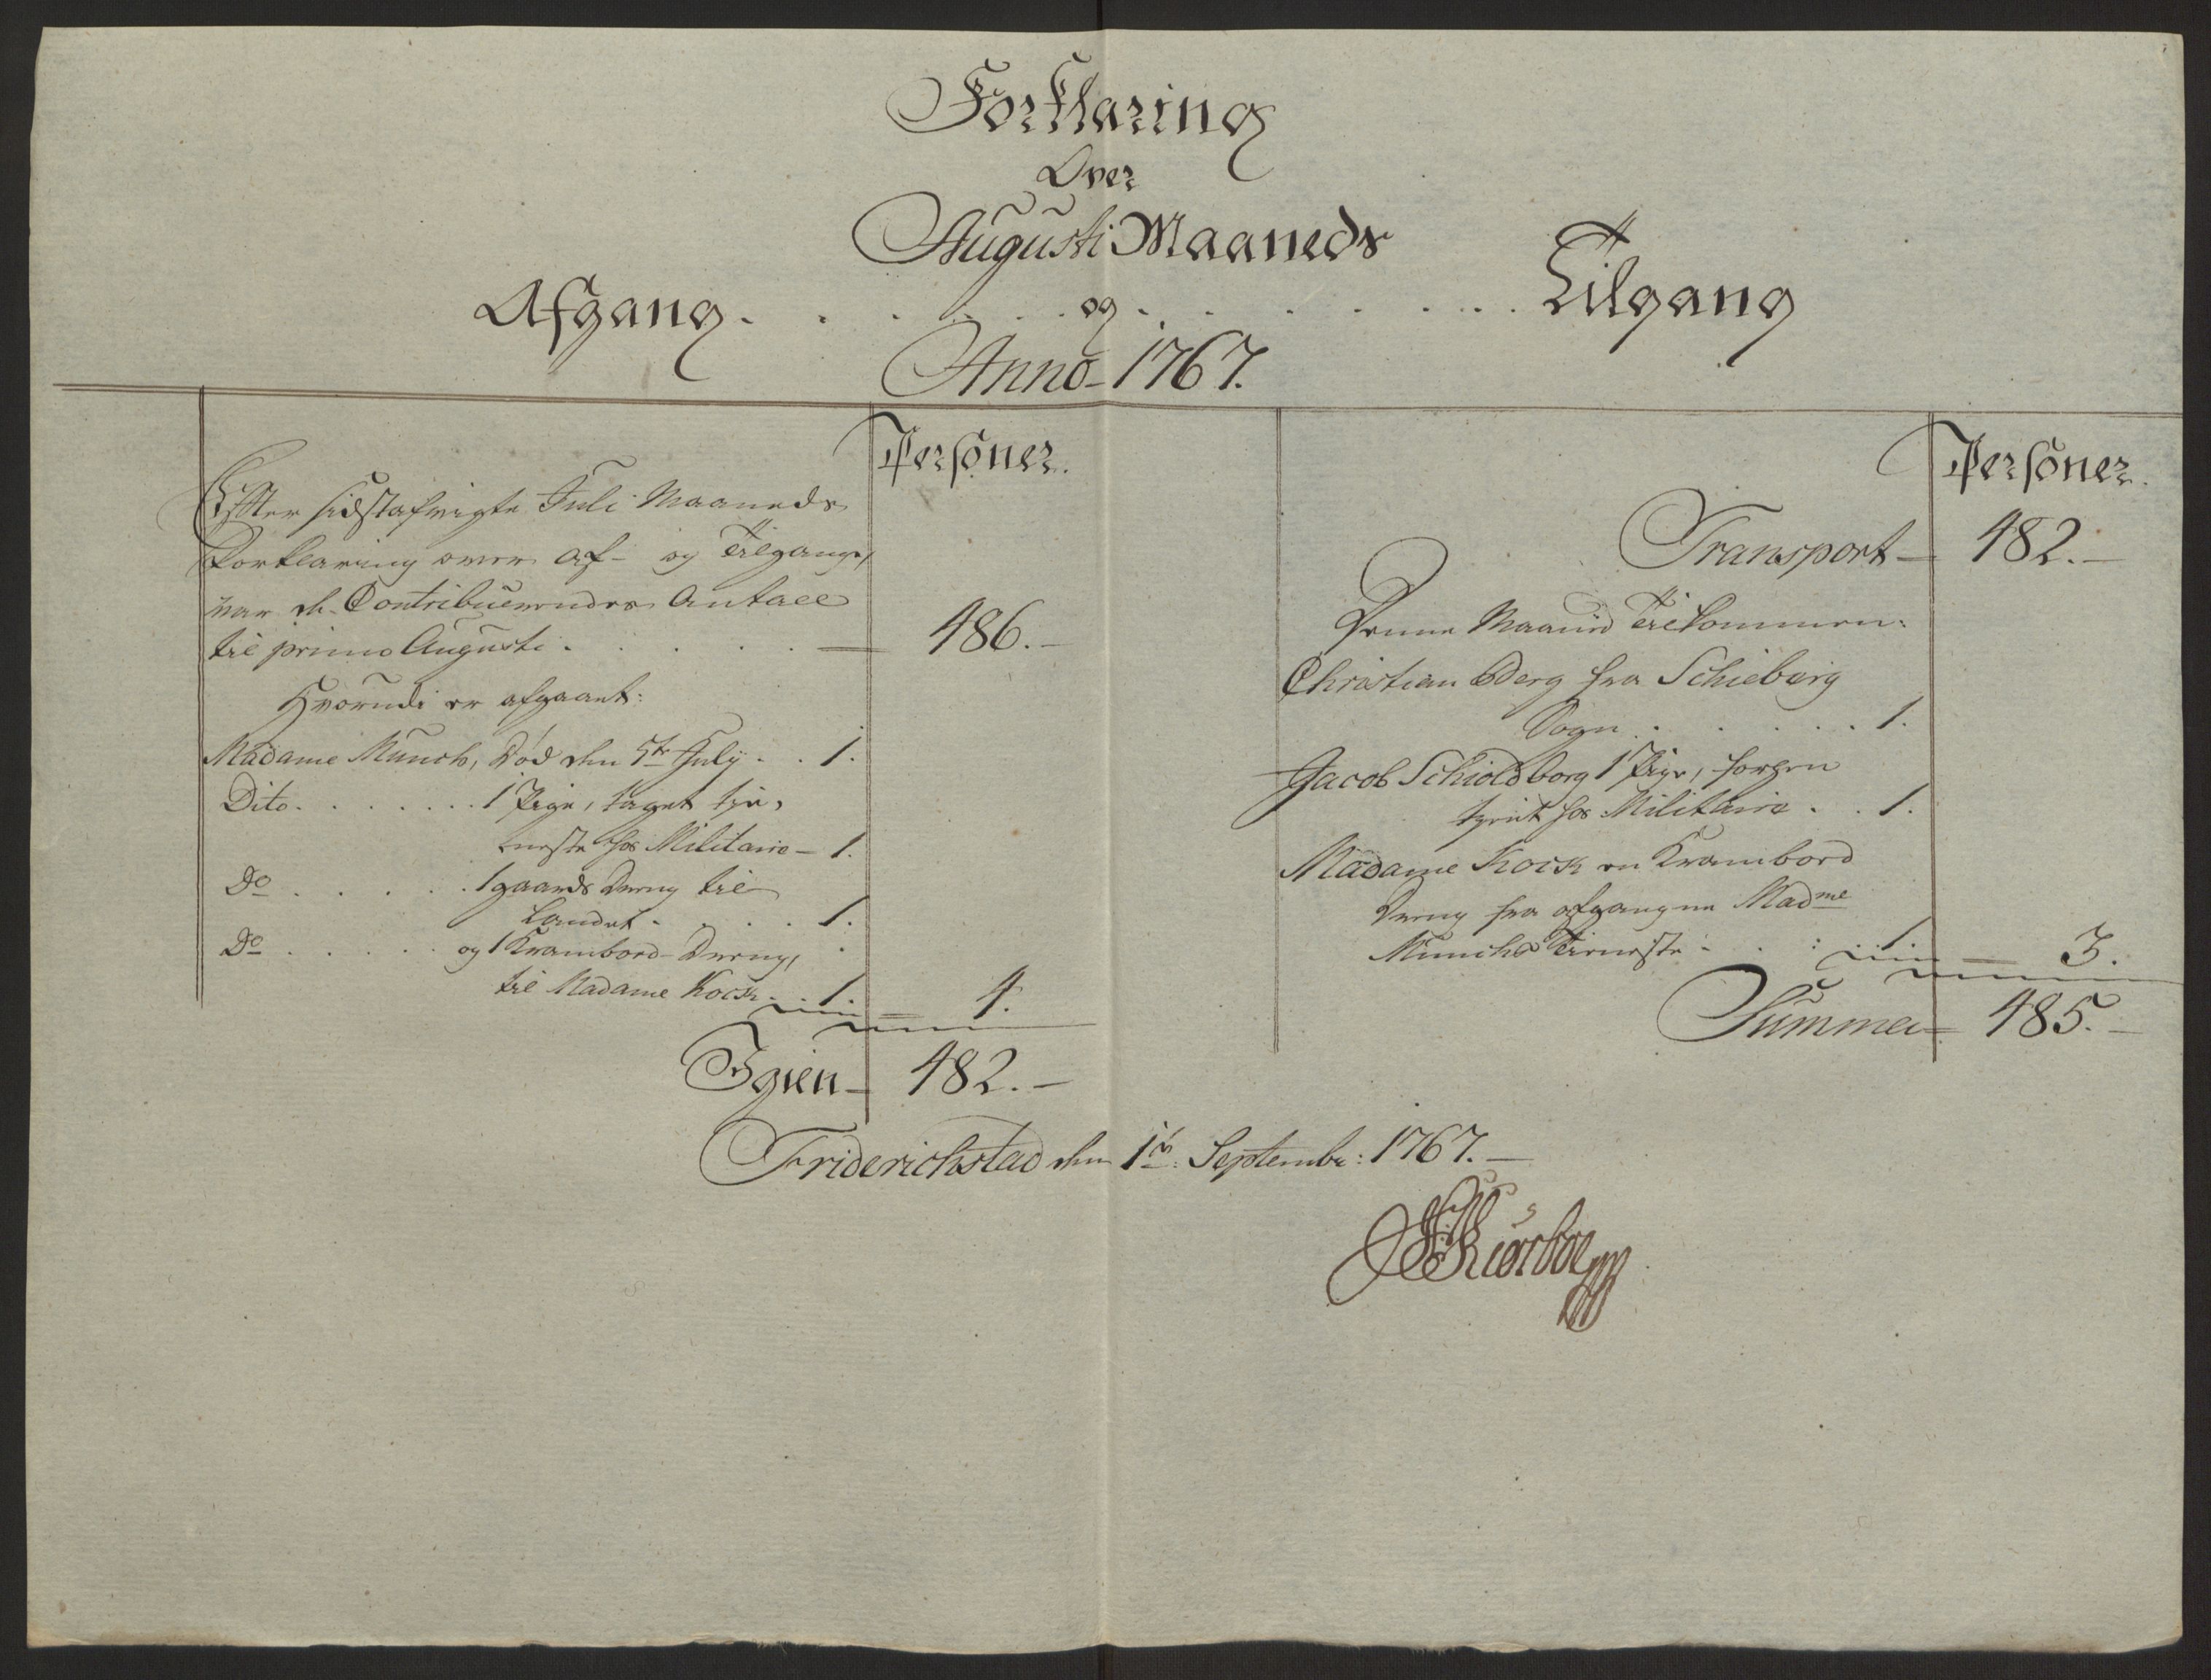 Forklaring
Over
Augusti Maaneds
Afgang . . . . . og . . . . . . Tilgang
Anno 1767.
Personer.
Efter sidstafvigte Juli Maaneds
Forklaring over af- og Tilgang,
var de Contribuerendes Antall
til primo Augusti . . . . . — 486.—
Hvorudi er afgaaet:
Madame Munch, død den 5te July . . 1.
Dito . . . . . . . 1 Pige, taget tie-
neste hos Militaire — 1.
Do . . . . . . 1 gaards Dreng til
Landet . . . . . 1.
Do . . . . . og 1 Krambord-Dreng,
til Madame Kock . . 1. = 4.
Igien — 482.—
Personer.
Transport — 482.—
Denne Maaned Tilkommen:
Christian Berg fra Schieberg
Sogn . . . . . . 1.
Jacob Schioldborg 1 Pige, forhen
tient hos Militaire . . 1.
Madame Kock en Krambord
Dreng fra afgangne Madme
Munchs Tieneste . . : . . 1. = 3.
Summa — 485.—
Friderichstad den 1te Septembr: 1767.—